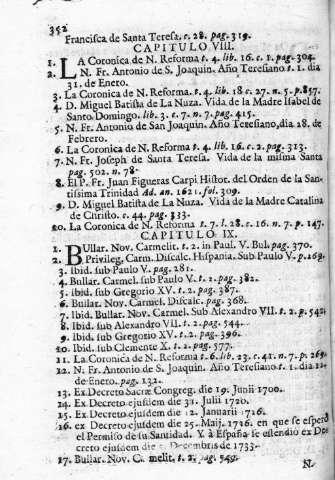 352
Francisca de Santa Teresa, c. 28. pag. 319.
CAPITULO VIII.
1. LA Coronica de N. Reforma t. 4. lib. 16. c. 1. pag. 304.
2. N. Fr. Antonio de S. Joaquin. Año Teresiano t. 1. dia
31. de Enero.
3. La Coronica de N. Reforma. t. 4. lib. 18. c. 27. n. 5. p. 857.
4. D. Miguel Batista de La Nuza. Vida de la Madre Isabel de
Santo Domingo. lib. 3. c. 7. n. 7. pag. 415.
5. N. Fr. Antonio de San Joaquin. Año Teresiano, dia 28. de
Febrero.
6. La Coronica de N. Reforma t. 4. lib. 16. c. 2. pag. 313.
7. N. Fr. Joseph de Santa Teresa. Vida de la misma Santa
pag. 502. n. 78.
8. El P. Fr. Juan Figueras Carpi Histor. del Orden de la San-
tissima Trinidad Ad. an. 1621. fol. 309.
9. D. Miguel Batista de La Nuza. Vida de la Madre Catalina
de Christo. c. 44. pag. 333.
10. La Coronica de N. Reforma t. 7. l. 28. c. 16. n. 7. p. 147.
CAPITULO IX.
1. BUllar. Nov. Carmelit. t. 2. in Paul. V. Bul. pag. 370.
2. Privileg. Carm. Discalc. Hispania. Sub Paulo V. p. 169.
3. Ibid. sub Paulo V. pag. 281.
4. Bullar. Carmel. sub Paulo V. t. 2. pag. 382.
5. Ibid. sub Gregorio XV. t. 2. pag. 387.
6. Bullar. Nov. Carmel. Discalc. pag. 368.
7. Ibid. Bullar. Nov. Carmel. Sub Alexandro VII. t. 2. p. 542.
8. Ibid. sub Alexandro VII. t. 2. pag. 544.
9. Ibid. sub Gregorio XV. t. 2. pag. 396.
10. Ibid. sub Clemente X. t. 2. pag. 577.
11. La Coronica de N. Reforma t. 6. lib. 23. c. 41. n. 7. p. 269.
12. N. Fr. Antonio de S. Joaquin. Año Teresiano t. 1. dia 12.
de Enero. pag. 132.
13. Ex Decreto Sacræ Congreg. die 19. Junii 1700.
14. Ex Decreto ejusdem die 31. Julii 1720.
15. Ex Decreto ejusdem die 12. Januarii 1726.
16. ex Decreto ejusdem die 25. Maij. 1726. en que se esperó
el Permiso de su Sanidad. Y à España se estendio ex De-
creto ejusdem die Decembris de 1733.
17. Bullar. Nov. Carmelit. t. 2. pag. 549.
N.